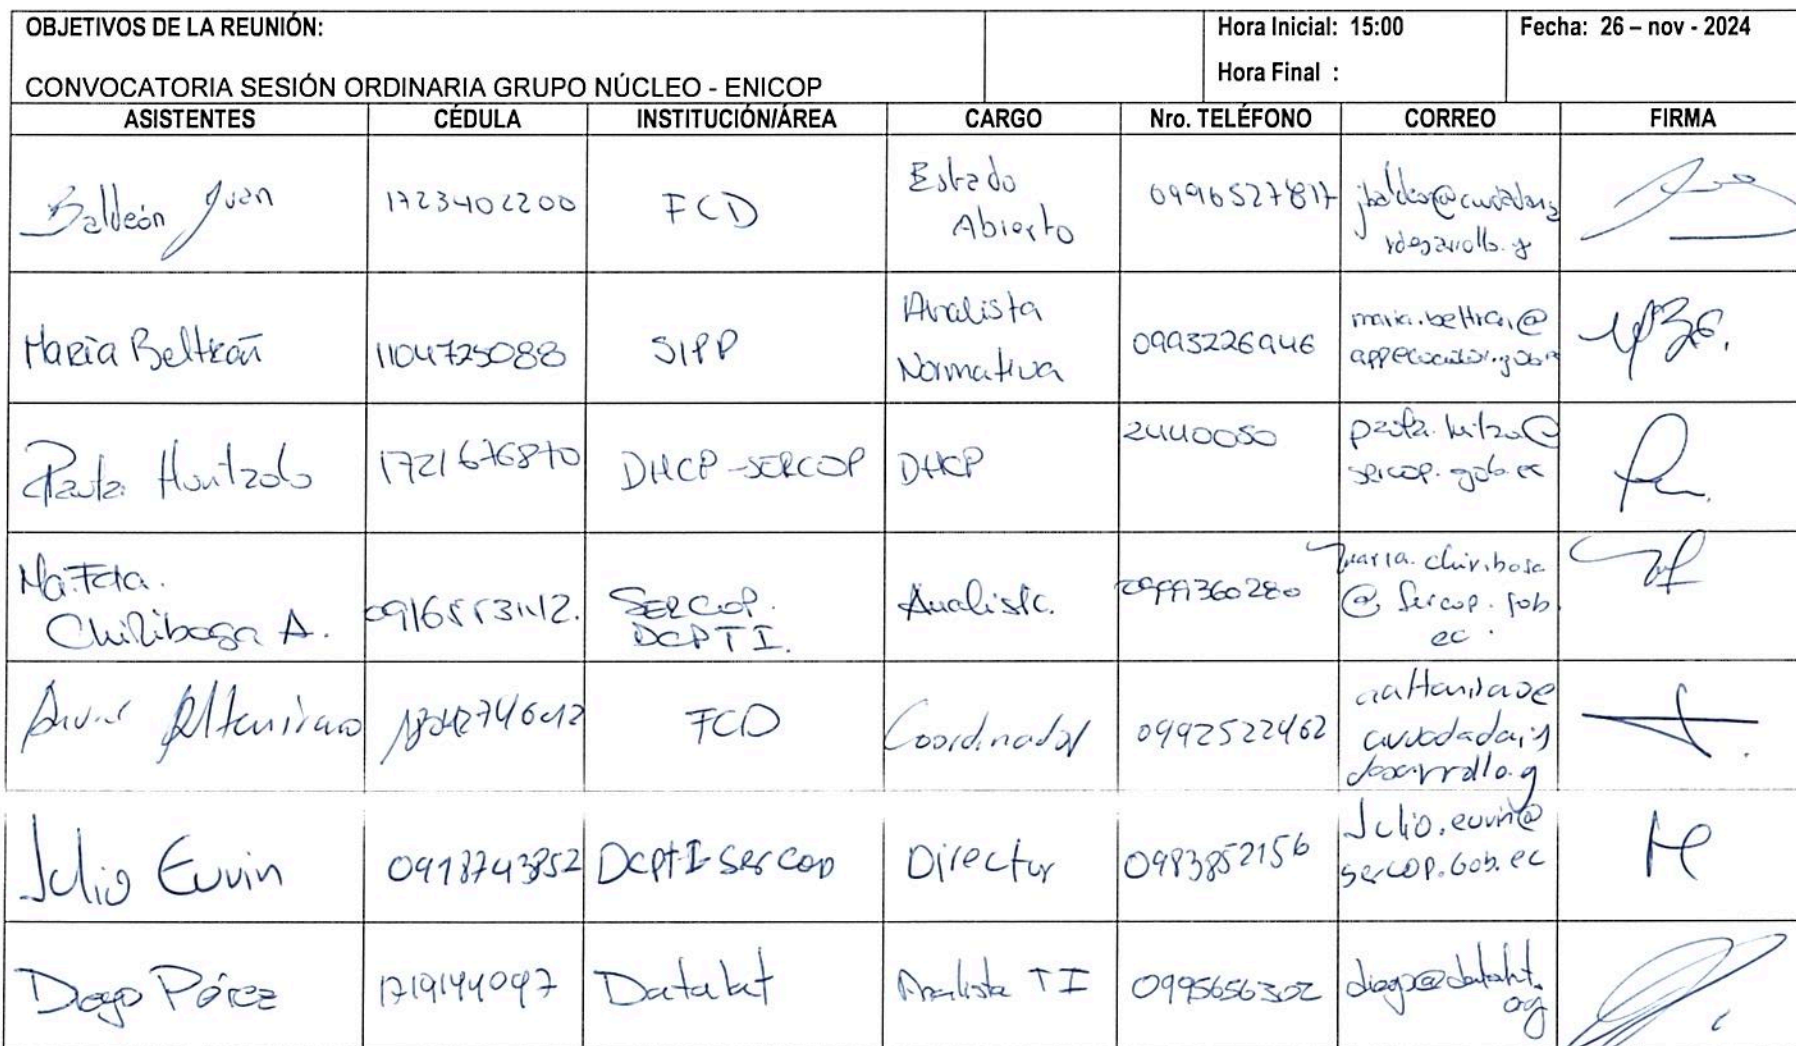 OBJETIVOS DE LA REUNIÓN:
CONVOCATORIA SESIÓN ORDINARIA GRUPO NÚCLEO - ENICOP
Hora Inicial: 15:00
Hora Final :
Fecha: 26 – nov - 2024
ASISTENTES CÉDULA INSTITUCIÓN/ÁREA CARGO Nro. TELÉFONO CORREO FIRMA
Baldeón Juan 1723402200 FCD Estado
Abierto
0996527817
María Beltrán 1104725088 SIPP Analista
Normativa
0993226946 maria.beltran@
Paola 1721676870 DHCP-SERCOP DHCP 2440050
sercop.gob.ec
Ma. Fda.
Chiriboga A.
SERCOP.
DCPTI.
Analista. 0999360280 maria.chiriboga
@ sercop.gob
ec.
Altamirano FCD Coordinador 0992522462
Julio Euvin 0918743852 DcptI-Sercop Director 0983852156 Julio.euvin@
sercop.Gob.ec
Diego Pérez 1719144097 Datalat Analista TI 0995656302 diego@datalat.
org